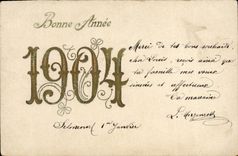 Bonne Année
1904
Merci de tes bons souhaits
cher Louis, reçois ainsi que
ta famille mes vœux
sincères et affectueux
Ta marraine
1er Janvier